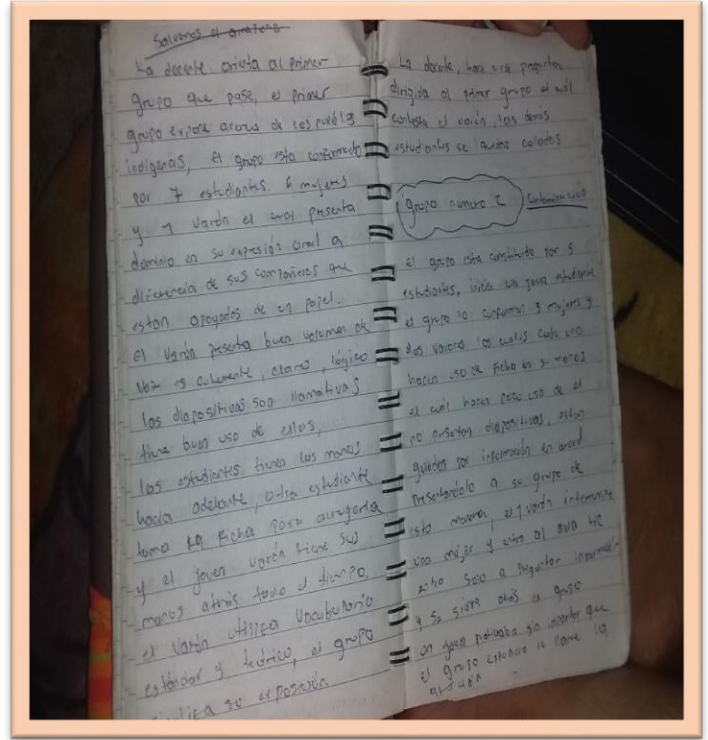 Salvemos el amazonas
La docente orienta al primer
grupo que pase, el primer
grupo expone acerca de los pueblos
indigenas, el grupo esta conformado
por 7 estudiantes. 6 mujeres
y 1 varón el cual presenta
dominio en su expresión oral a
diferencia de sus compañeras que
estan apoyados de un papel.
el varón presenta buen volumen de
voz es coherente, claro, lógico
las diapositivas son llamativas
tiene buen uso de ellas,
los estudiantes tienen las manos
hacia adelante, otra estudiante
toma la ficha para
y el joven varón tiene sus
manos atrás todo el tiempo.
el varón utiliza vocabulario
estándar y teórico, el grupo
su exposición.
La docente, hace una pregunta
dirigida al primer grupo el cuál
contesta el varón, los demás
estudiantes se quedan callados
grupo numero 2 Contaminación
el grupo esta constituido por 5
estudiantes, inicia un joven estudiante
el grupo lo conforman 3 mujeres y
dos varones los cuales cada uno
hacen uso de ficha en su manos
el cuál hacen poco uso de el
no presentan diapositivas, estan
guiados por información en word
presentandolo a su grupo de
esta manera, el varón interrumpe
una mujer y entra al aula tic
solo a preguntar información
y se atrás a grupo
un joven sin importar que
el grupo le llame la
atención